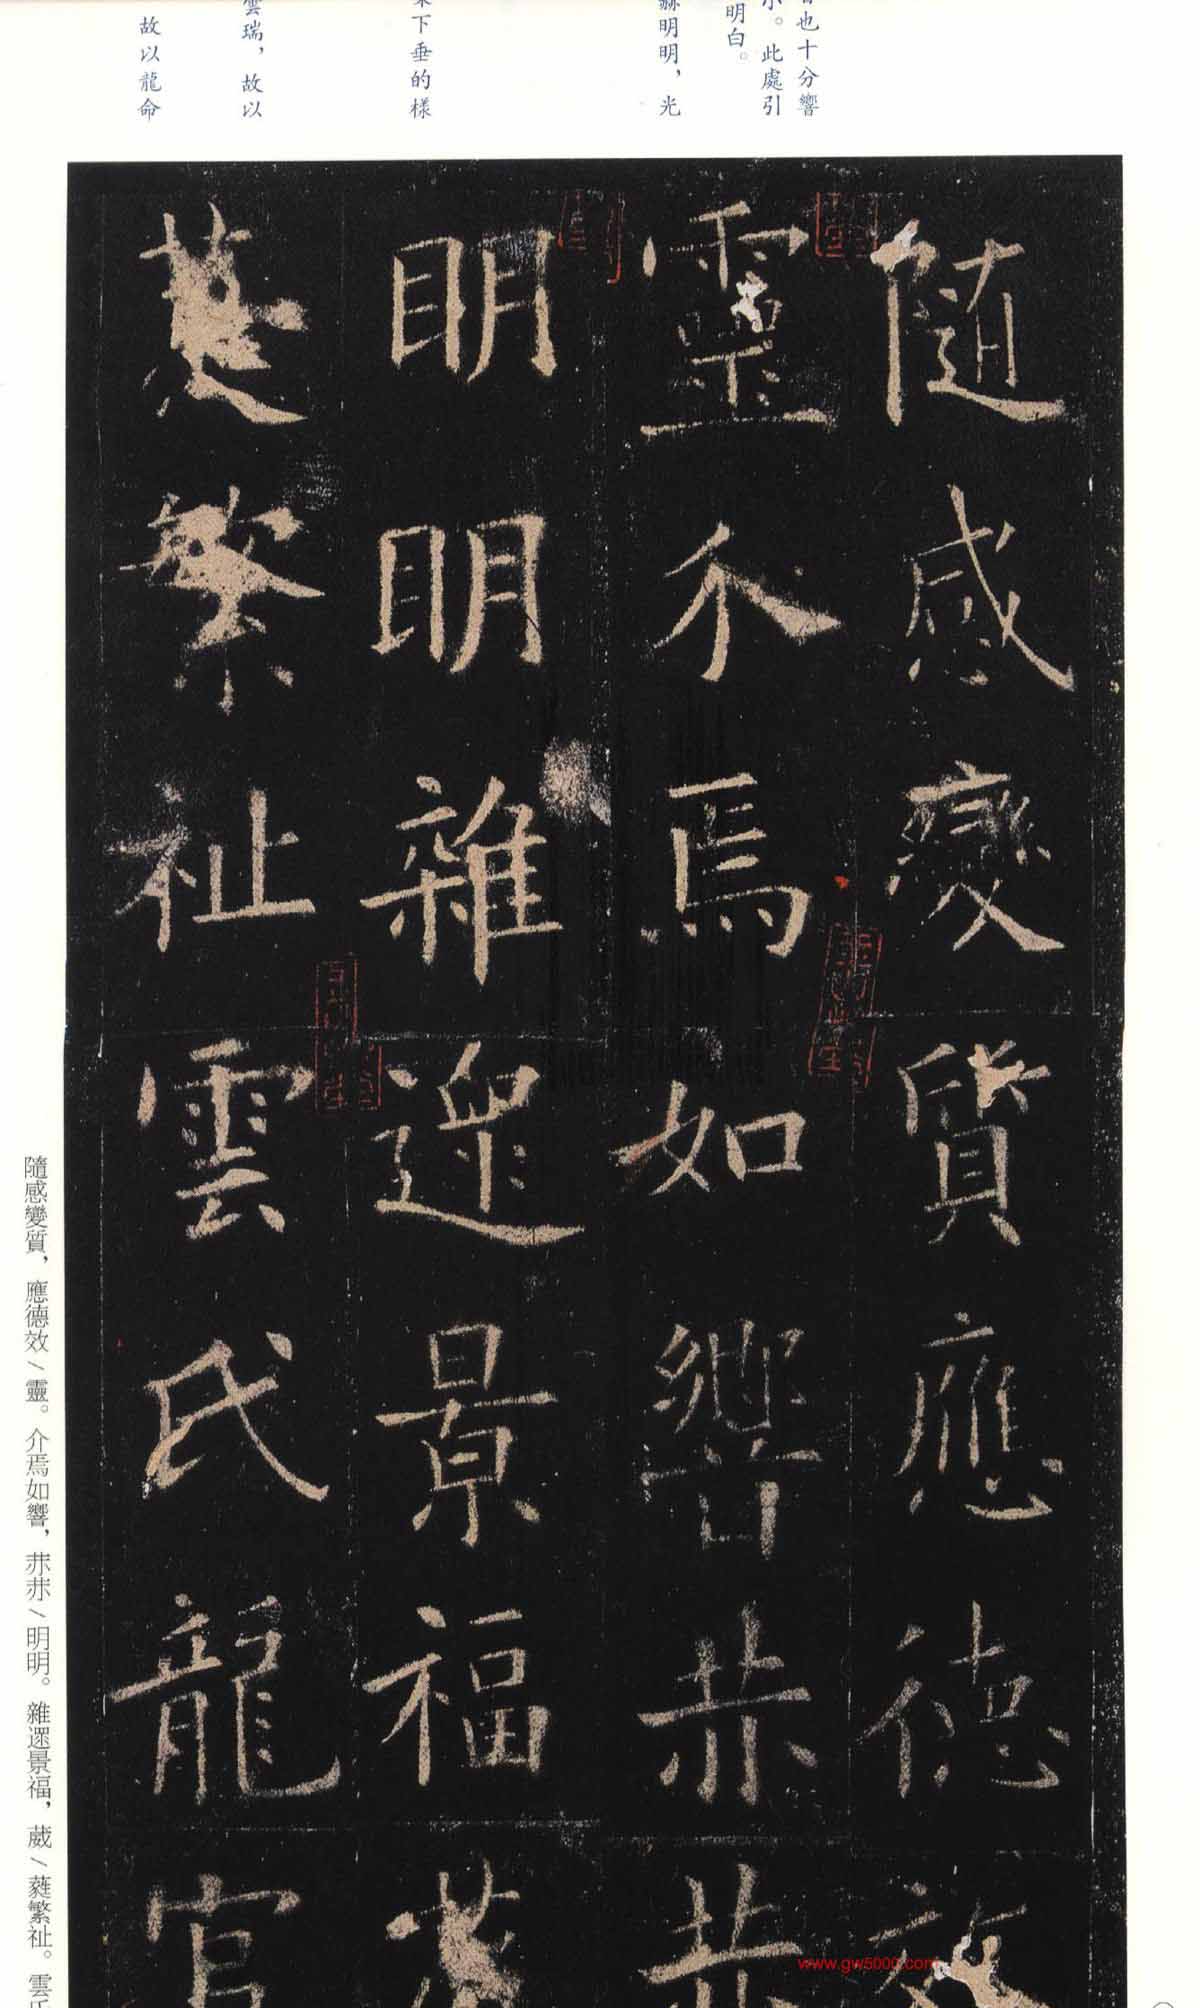 也十分響
小。此處引
明白。
赫明明，光
下垂的樣
雲瑞，故以
故以龍命
隨感變質應德效
靈介焉如響㳟㳟
明明雜遝景福葳
蕤繁祉雲氏龍官
隨感變質，應德效／靈。介焉如響，㳟㳟／明明。雜遝景福，葳／蕤繁祉。雲氏
www.gw5000.com